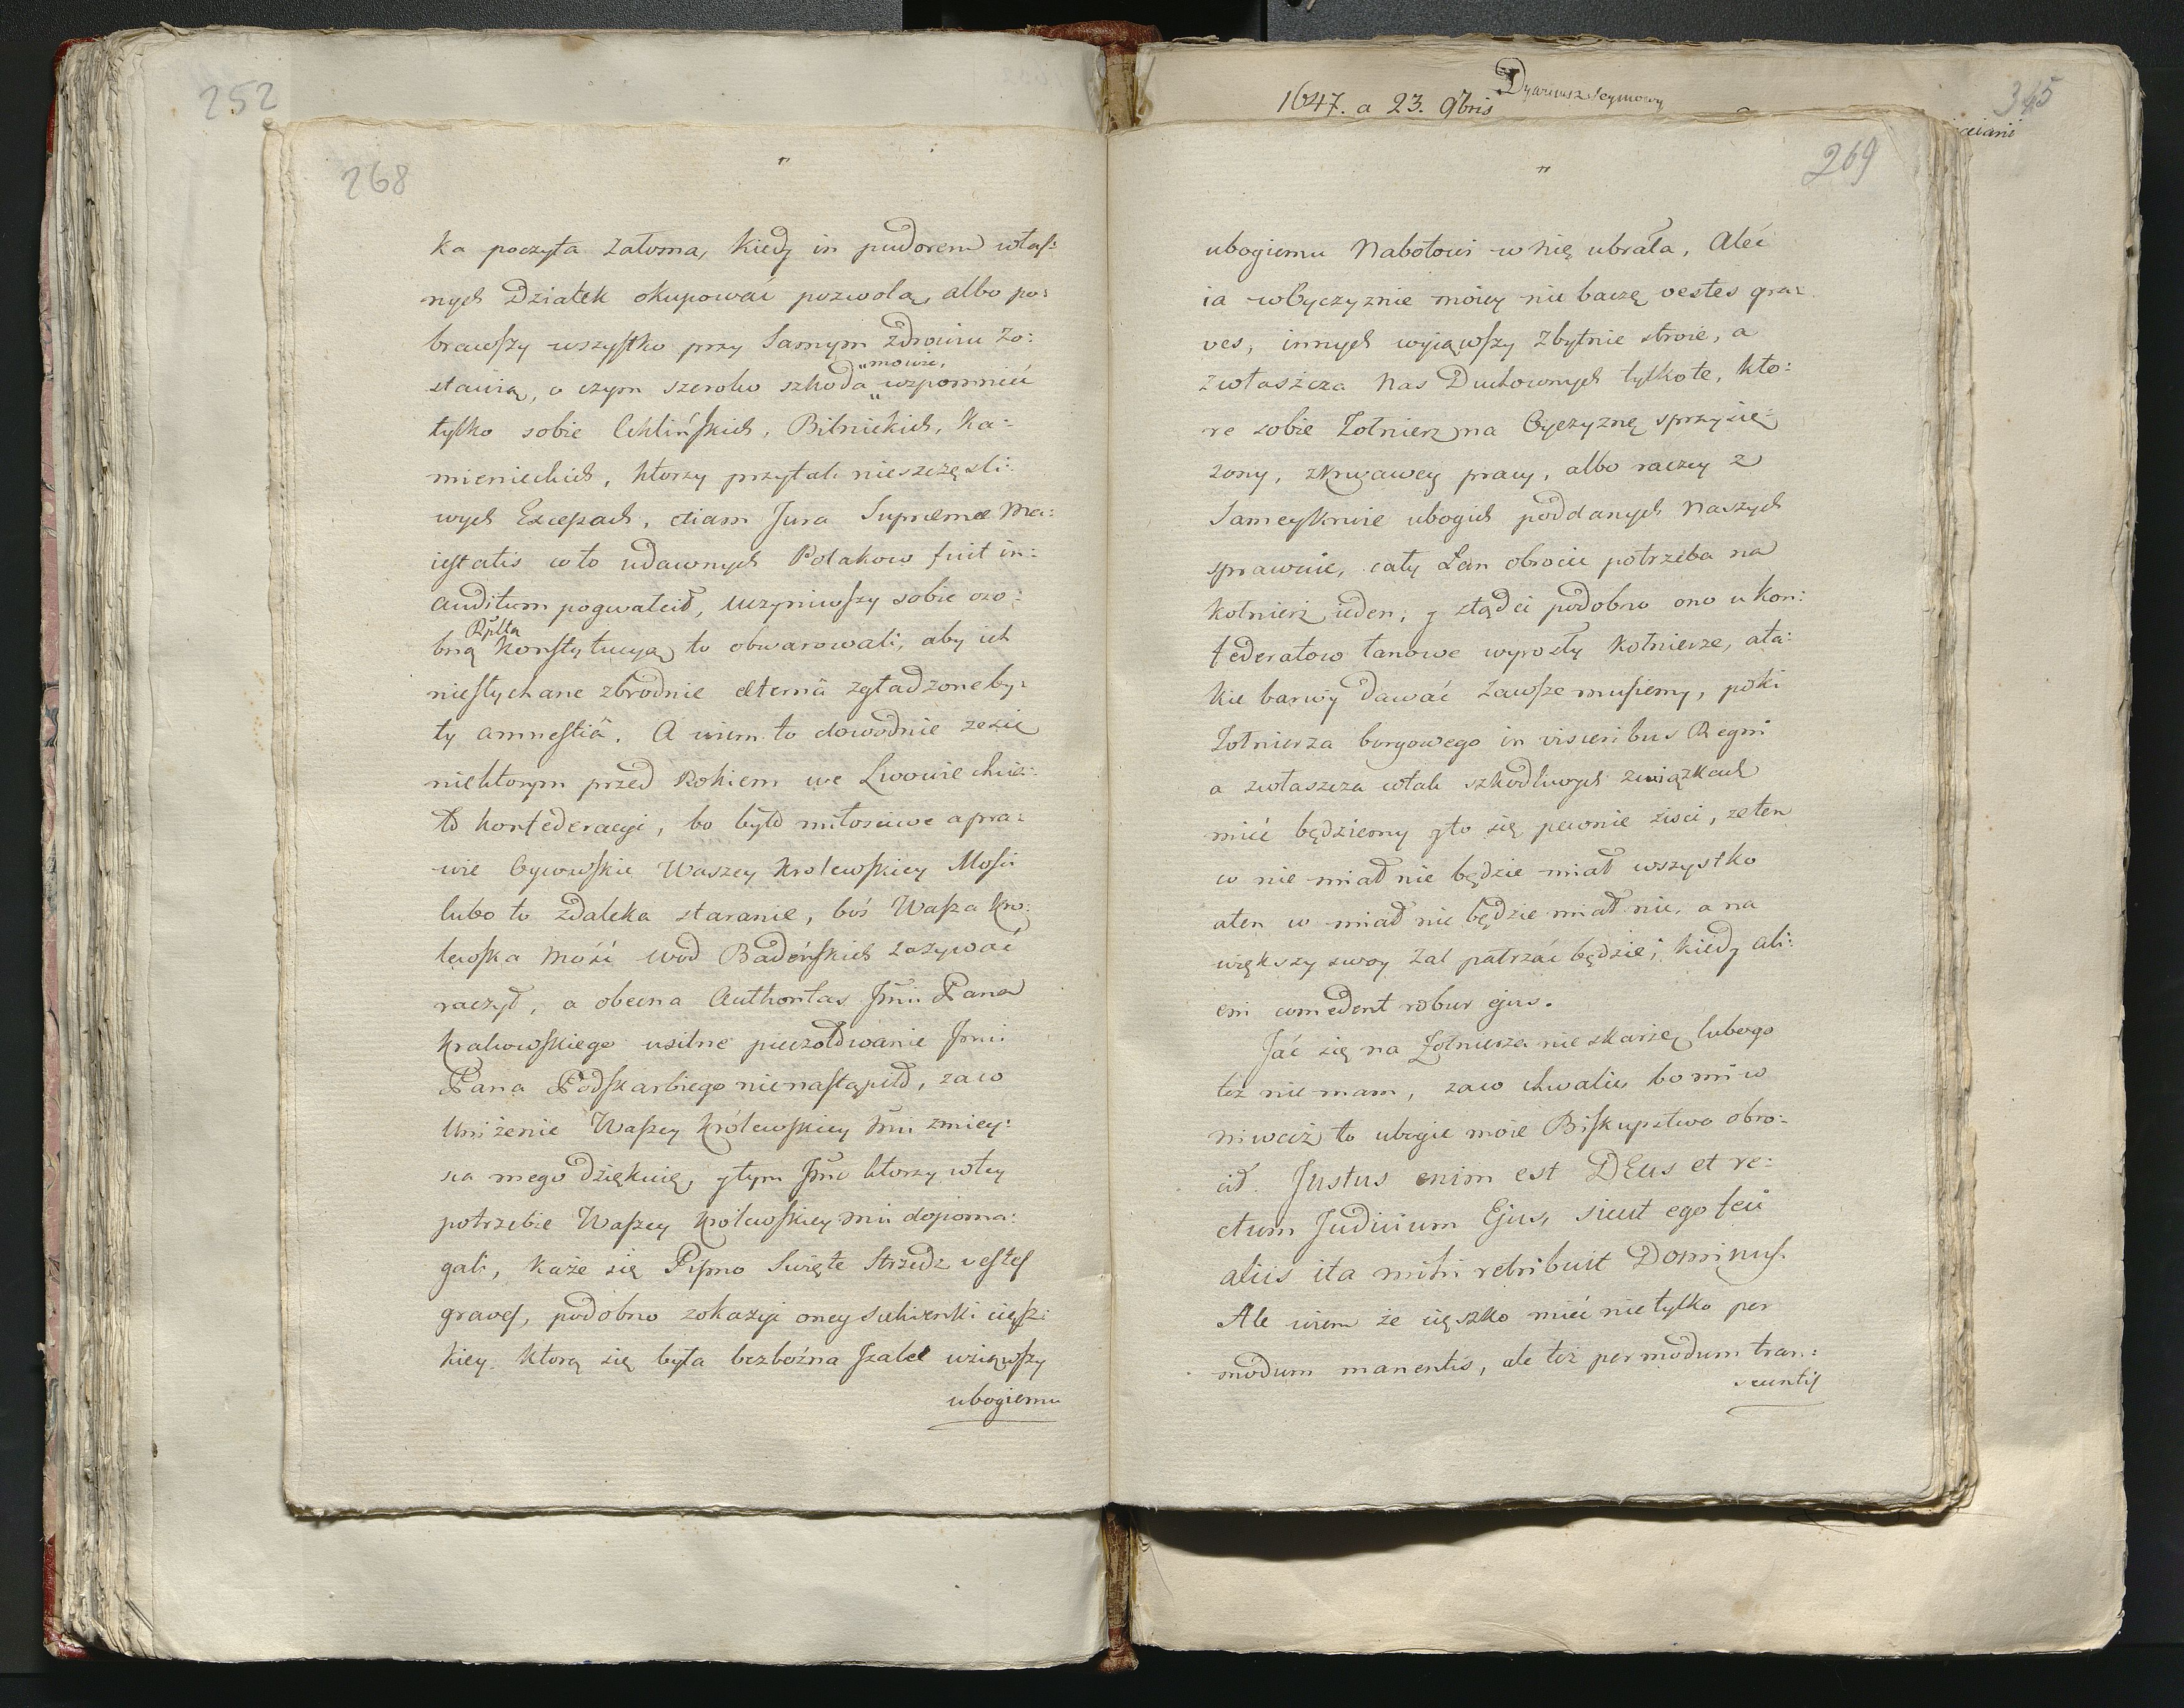 252
268
ka poczyta załoma, kiedy in pudorem włas:
nych Dziatek okupować pozwolą, albo po:
brawszy wszystko przy samym zdrowiu zo:
stawią, o czym szeroko szkoda „mowić, wzpomnieć
tylko sobie Chlińskich, Bilnickich, Ka:
mienieckich, ktorzy przytak nieszczęśli:
wych Excessach, etiam Jura Supremae Ma:
iestatis co to u dawnych Polakow fuit in:
auditum pogwałcił, uczyniwszy sobie oso:
bną Rplta Konstytucyą to obwarowali, aby ich
niesłychane zbrodnie aeterna zgładzone by:
ły amnestiâ. A wiem to dowodnie ze się
niektorym przed Rokiem we Lwowie chcia:
ło konfederacyi, bo było miłosciwe a pra:
wie Oycowskie Waszey Krolewskiey Mosci
lubo to zdaleka staranie, boś Wasza Kro:
lewska Mość wod Badeńskich zazywać
raczył, a obecna Authoritas Jmci Pana
Krakowskiego usilne pieczołowanie Jmci
Pana Podskarbiego nienastąpiło, zaco
Uniżenie Waszey Królewskiey Mci zmiey:
sca mego dziękuię, y tym Jmc ktorzy wtey
potrzebie Waszey Krolewskiey Mci dopoma:
gali, każe się Pismo Swięte strzedz vestes
graves, podobno zokazyi oney sukienki cięsz:
kiey, ktorą się była bezbożna Jzabel wziąwszy
ubogiemu
1647. a 23. 9bris
Dyariusz Seymowy
345
269
ubogiemu Nabotowi w nię ubrała, Aleć
ia w Oyczyznie moiey nie baczę vestes gra:
ves, innych wyiąwszy zbytnie stroie, a
zwłaszcza nas Duchownych tylko te, kto:
re sobie Zołnierz na Oyczyznę sprzysię:
zony, zkrwawey pracy, albo raczey z
samey krwie ubogich poddanych naszych
sprawuie, cały Lan obrocić potrzeba na
kołnierz ieden, y ztądci podobno ono u kon:
federatow łanowe wyrosły kołnierze, a ta:
kie barwy dawać zawsze musiemy, poki
Zołnierza burgowego in visceribus Regni
a zwłaszcza wtak szkodliwych związkach
mieć będziemy y to się pewnie zisci, ze ten
co nie miał nie będzie miał wszystko
a ten co miał nie będzie miał nic, a na
większy swoy żal patrzać będzie, kiedy ali:
eni comedent robur ejus.
Jać się na Zołnierza nie skarżę, lubego
też nie mam, zaco chwalić bo mi w
niwecz to ubogie moie Biskupstwo obro:
cił. Justus enim est DEus et re:
ctum Judicium Ejus, sicut ego feci
aliis ita mihi retribuit Dominus.
Ale wiem że cięszko mieć nie tylko per
modum manentis, ale też per modum tran:
seuntis